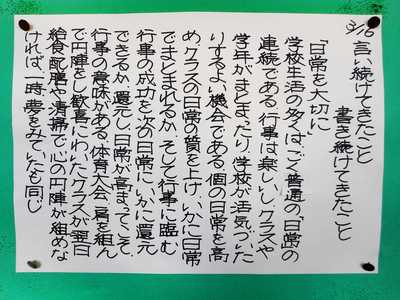 3/16
言い続けてきたこと
書き続けてきたこと
「日常を大切に」
学校生活の多くは、ごく普通の「日常」の
連続である。行事は楽しいし、クラスや
学年がまとまったり、学校が活気づいた
りするよい機会である。個の日常を高
め、クラスの日常の質を上げ、いかに日常
でまとまれるか、そして行事に臨む。
行事の成功を次の日常に、いかに還元
できるか。還元し、日常が高まってこそ、
行事の意味がある。体育大会、肩を組ん
で円陣をし歓喜にわいたクラスが翌日
給食配膳や清掃で心の円陣が組めな
ければ、一時、夢をみていたも同じ